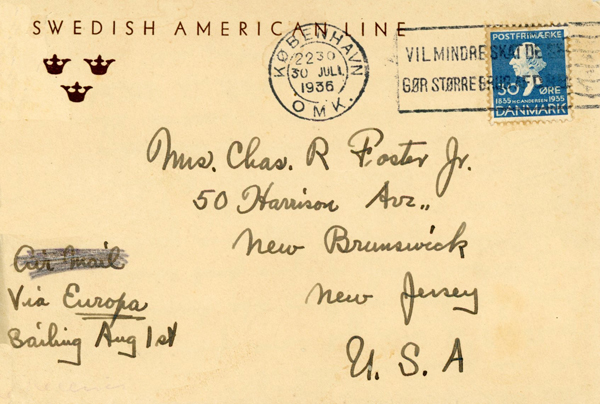 SWEDISH AMERICAN LINE
KØBENHAVN
2230
30 JULI
1936
OMK.
VIL MINDRE SKAT DE
GØR STØRRE BRUG AF
POSTFRIMÆRKE
30 ØRE
1835 H.C. ANDERSEN 1935
DANMARK
Mrs. Chas. R Foster Jr.
50 Harrison Ave.,
New Brunswick
New Jersey
U. S. A
Air Mail
Via Europa
Sailing Aug 1st